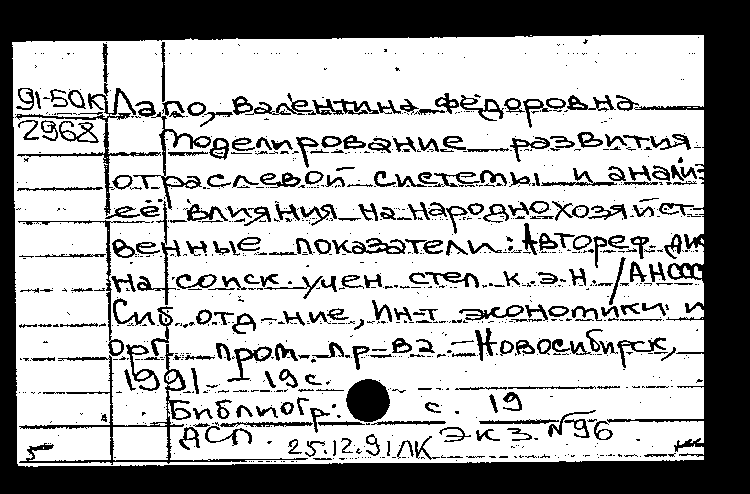 91-50К Лапо, Валентина Фёдоровна
2968 Моделирование развития
отраслевой системы и анализ
её влияния на народнохозяйст-
венные показатели: Автореф. дис
на соиск. учен степ к.э.н. / АН СССР
Сиб. отд-ние, Ин-т экономики и
орг. пром. пр-ва. - Новосибирск,
1991. - 19 с.
Библиогр: с. 19
ДСП. Экз. №96
25.12.91 ЛК